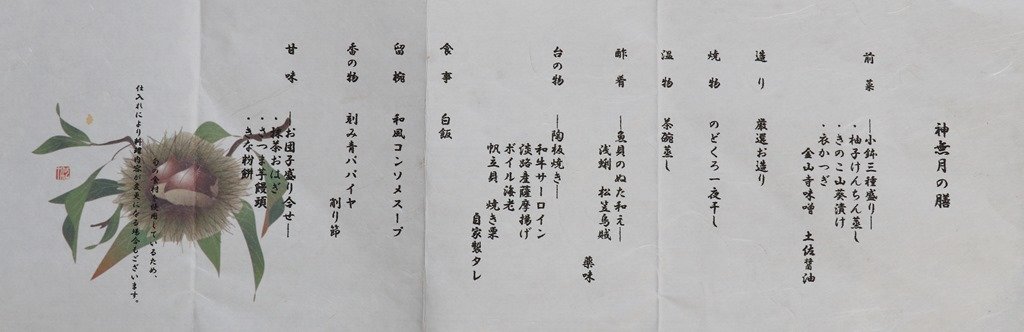 神無月の膳
前菜 ―小鉢三種盛り―
・柚子けんちん蒸し
・きのこ山葵漬け
・衣かつぎ
金山寺味噌 土佐醤油
造り 厳選お造り
焼物 のどくろ一夜干し
温物 茶碗蒸し
酢肴 ―魚貝のぬた和え―
浅蜊 松笠烏賊
薬味
台の物 ―陶板焼き―
和牛サーロイン
淡路産薩摩揚げ
ボイル海老
帆立貝 焼き栗
自家製タレ
食事 白飯
留椀 和風コンソメスープ
香の物 刻み青パパイヤ
削り節
甘味 ―お団子盛り合せ―
・抹茶おはぎ
・さつま芋饅頭
・きな粉餅
旬の食材を使用しているため、
仕入れにより料理内容が変更になる場合もございます。